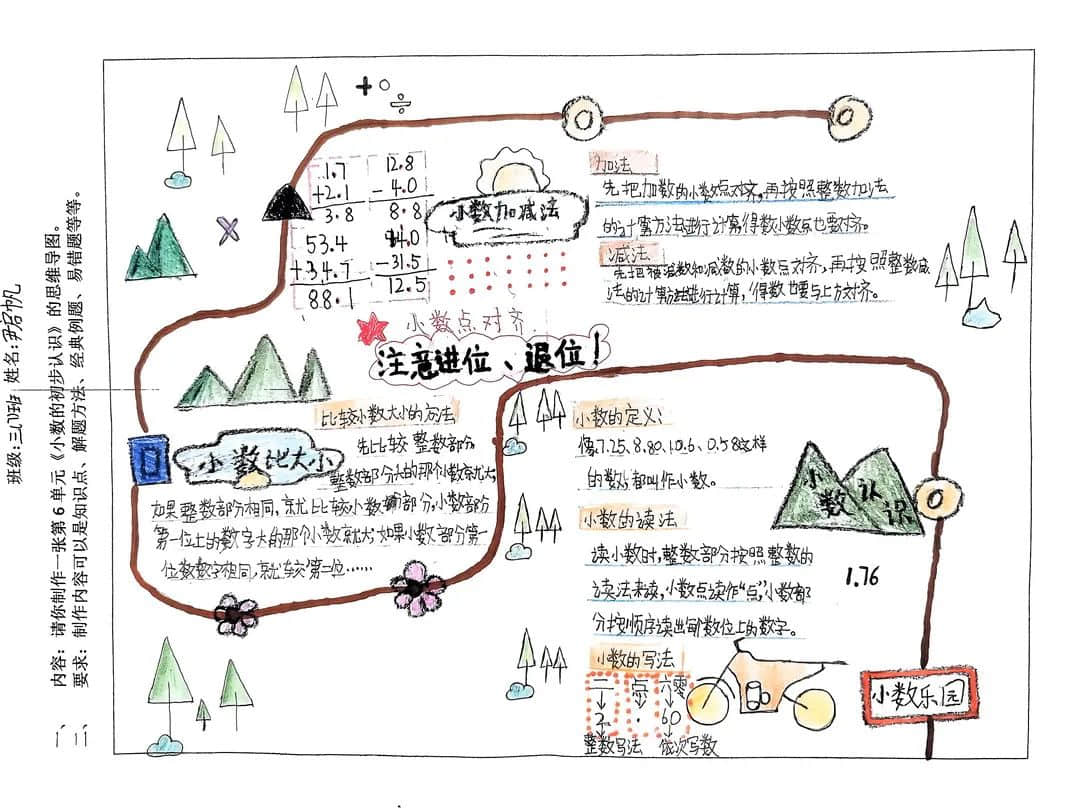 班级:三(7)班 姓名:
一、内容:请你制作一张第6单元《小数的初步认识》的思维导图。
二、要求:制作内容可以是知识点、解题方法、经典例题、易错题等等。
+ ÷
×
1.7
+2.1
3.8
12.8
- 4.0
8.8
53.4
+34.7
88.1
44.0
-31.5
12.5
小数加减法
加法
先把加数的小数点对齐,再按照整数加法
的计算方法进行计算,得数小数点也要对齐。
减法
先把被减数和减数的小数点对齐,再按照整数减
法的计算方法进行计算,得数也要与上方对齐。
小数点对齐
注意进位、退位!
小数比大小
比较小数大小的方法
先比较 整数部分
整数部分大的那个小数就大,
如果整数部分相同,就比较小数部分,小数部分
第一位上的数字大的那个小数就大;如果小数部分第一
位数字相同,就比较第二位……
小数的定义:
像7.25、8.80、10.6、0.58这样
的数,都叫作小数。
小数的读法
读小数时,整数部分按照整数的
读法来读,小数点读作“点”,小数部
分按顺序读出每个数位上的数字。
小数认识
1.76
小数的写法
二 点 六零
↓ ↓ ↓
2 . 60
整数写法 依次写数
小数乐园